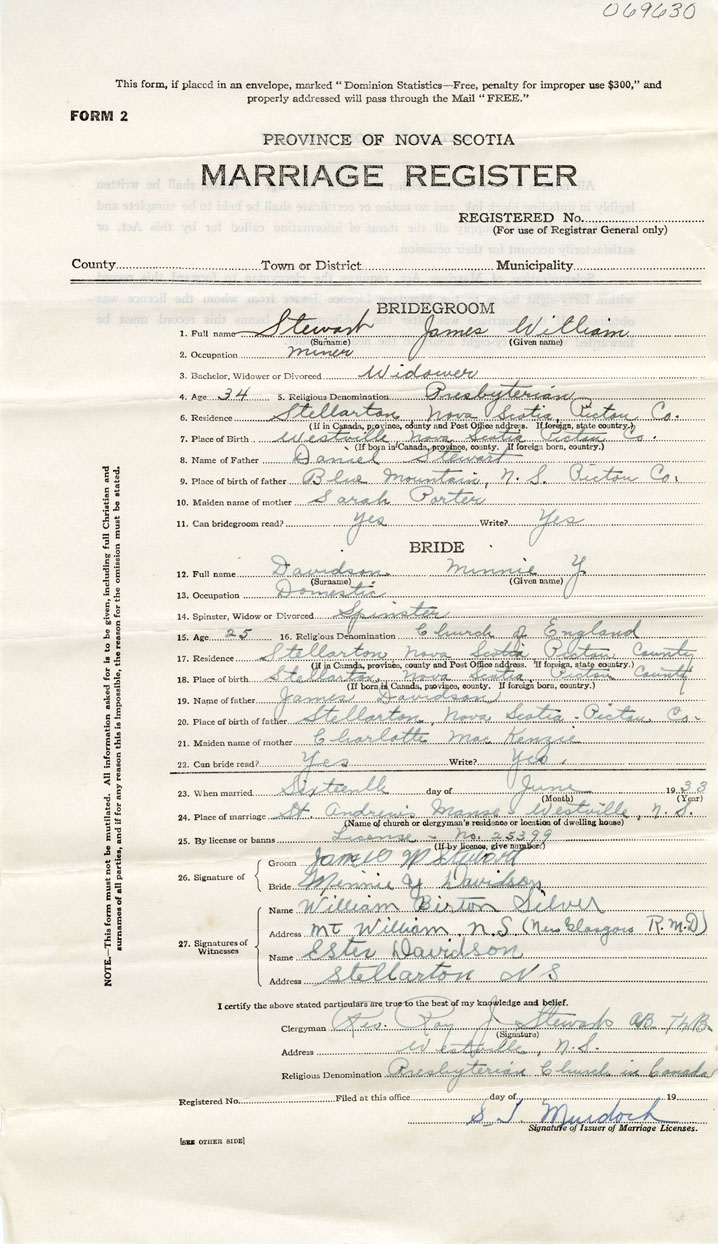 069630
This form, if placed in an envelope, marked "Dominion Statistics—Free, penalty for improper use $300," and
properly addressed will pass through the Mail "FREE."
FORM 2
PROVINCE OF NOVA SCOTIA
MARRIAGE REGISTER
REGISTERED No.
(For use of Registrar General only)
County Town or District Municipality
BRIDEGROOM
1. Full name Stewart James William
(Surname) (Given name)
2. Occupation miner
3. Bachelor, Widower or Divorced Widower
4. Age 34 5. Religious Denomination Presbyterian
6. Residence Stellarton Nova Scotia Pictou Co.
(If in Canada, province, county and Post Office address. If foreign, state country.)
7. Place of Birth Westville Nova Scotia Pictou Co.
(If born in Canada, province, county. If foreign born, country.)
8. Name of Father Daniel Stewart
9. Place of birth of father Blue Mountain, N. S. Pictou Co.
10. Maiden name of mother Sarah Porter
11. Can bridegroom read? Yes Write? Yes
BRIDE
12. Full name Davidson Minnie Y
(Surname) (Given name)
13. Occupation Domestic
14. Spinster, Widow or Divorced Spinster
15. Age 25 16. Religious Denomination Church of England
17. Residence Stellarton, Nova Scotia Pictou County
(If in Canada, province, county and Post Office address. If foreign, state country.)
18. Place of birth Stellarton, Nova Scotia, Pictou County
(If born in Canada, province, county. If foreign born, country.)
19. Name of father James Davidson
20. Place of birth of father Stellarton, Nova Scotia - Pictou Co.
21. Maiden name of mother Charlotte MacKenzie
22. Can bride read? Yes Write? Yes.
23. When married Sixteenth day of June 1933
(Month) (Year)
24. Place of marriage St. Andrew's Manse Westville, N. S.
(Name of church or clergyman's residence or location of dwelling house)
25. By license or banns License - No. 25399
(If by licence, give number.)
26. Signature of
Groom James W Stewart
Bride Minnie Y Davidson
27. Signatures of Witnesses
Name William Birton Silver
Address Mt William, N.S. (New Glasgow R.M.D)
Name Ester Davidson
Address Stellarton NS
I certify the above stated particulars are true to the best of my knowledge and belief.
Clergyman Rev. Roy J. Stewart AB.
(Signature)
Address Westville, N.S.
Religious Denomination Presbyterian Church in Canada
Registered No. Filed at this office day of 19
S. J. Murdoch
Signature of Issuer of Marriage Licenses.
[SEE OTHER SIDE]
NOTE.—This form must not be mutilated. All information asked for is to be given, including full Christian and
surnames of all parties, and if for any reason this is impossible, the reason for the omission must be stated.